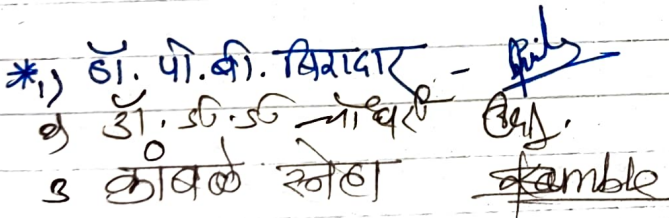 *१) डॉ. पी.बी. बिरादार -
२) डॉ. डी.डी चौधरी
३ कांबळे स्नेहा Kamble